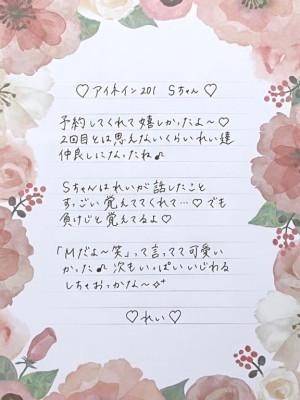 ♡ アイネイン 201 Sちゃん ♡
予約してくれて嬉しかったよ～♡
2回目とは思えないくらいれい達
仲良しになったね♪
Sちゃんはれいが話したこと
すっごい覚えててくれて…♡ でも
負けじと覚えてるよ♡
「Mだよ～笑」って言ってて可愛い
かった♪ 次もいっぱいいじわる
しちゃおっかな～✧⁺
♡ れい ♡